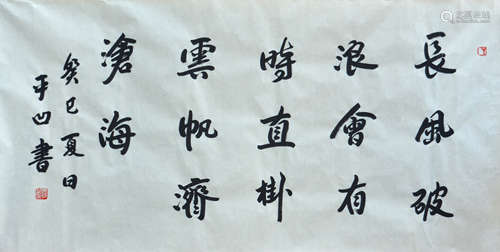 長風破
浪會有
時直掛
雲帆濟
滄海
癸巳夏日
平凹書